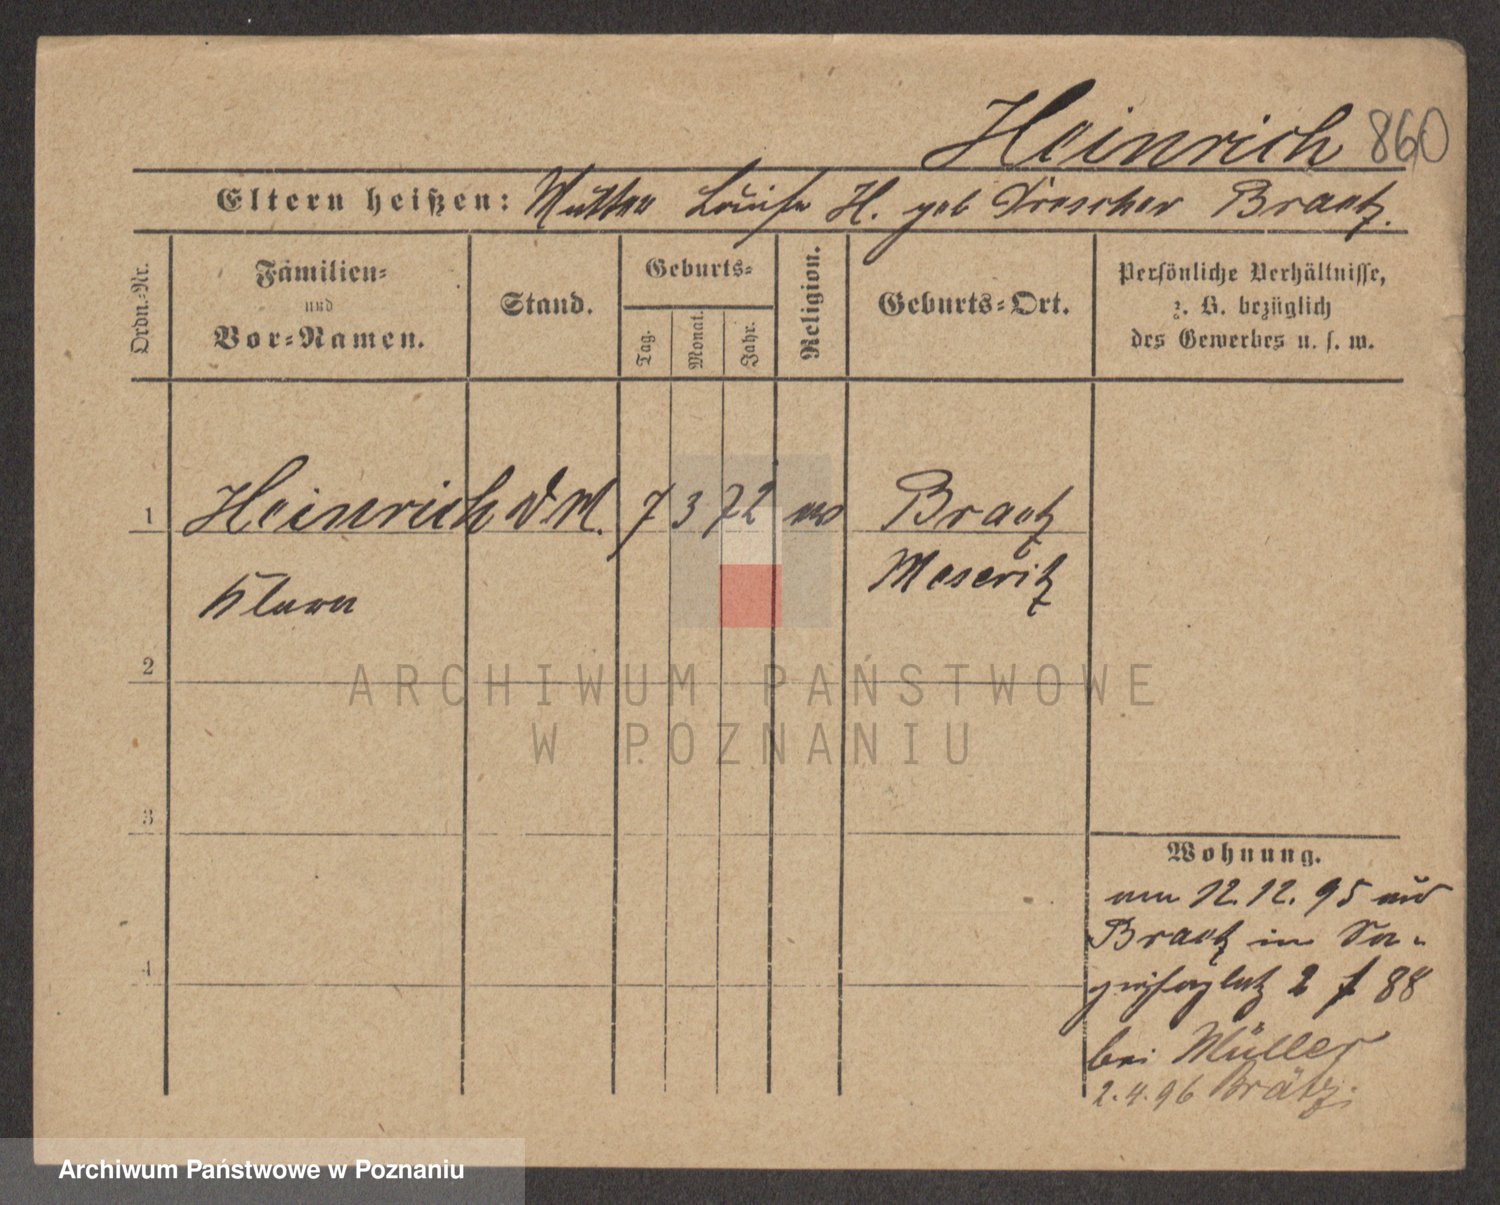 Heinrich 860
Eltern heißen: Mutter Louise H. geb Drescher Braetz.
Ordn.-Nr.
Familien-
und
Vor-Namen.
Stand.
Geburts-
Tag.
Monat.
Jahr.
Religion.
Geburts-Ort.
Persönliche Verhältnisse,
z. B. bezüglich
des Gewerbes u. s. w.
1 Heinrich D.M. 7 3 72 Braetz
Klara Meseritz
2
ARCHIWUM PAŃSTWOWE
W POZNANIU
3
Wohnung.
am 12.12.95 aus
Braetz in
2 f 88
4
bei Müller
2.4.96 Brätz.
Archiwum Państwowe w Poznaniu